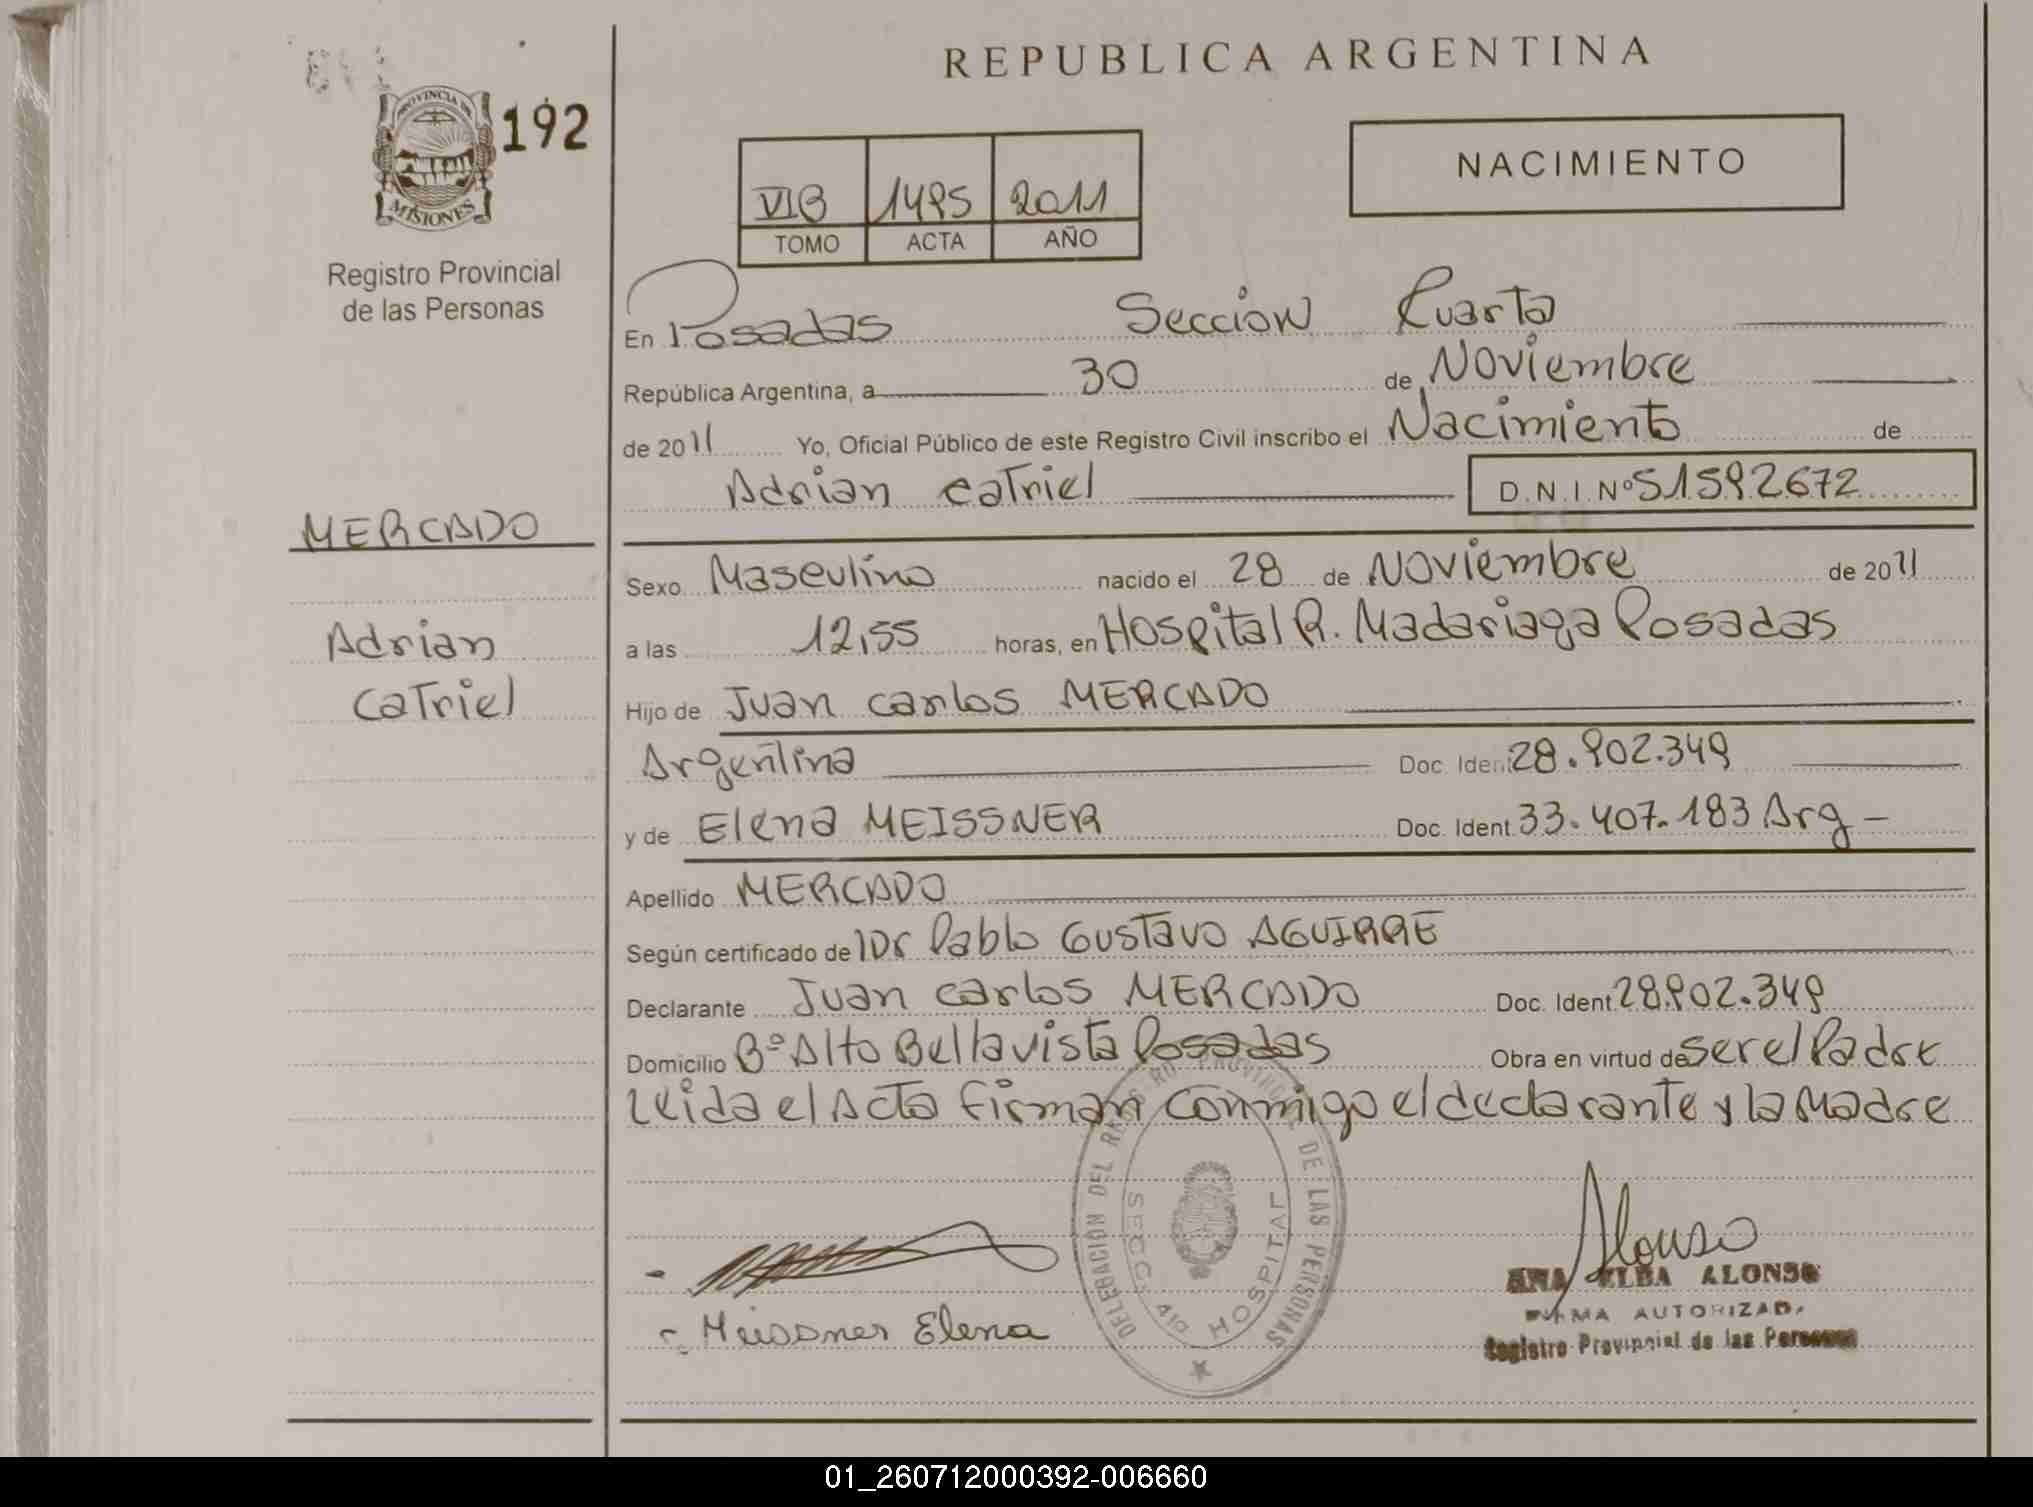 REPUBLICA ARGENTINA
PROVINCIA DE
MISIONES
192
NACIMIENTO
VIB 1495 2011
TOMO ACTA AÑO
Registro Provincial
de las Personas
En Posadas Sección Cuarta
República Argentina, a 30 de Noviembre
de 2011 Yo, Oficial Público de este Registro Civil inscribo el Nacimiento de
Adrian Catriel D.N.I. Nº 51592672
MERCADO
Adrian
Catriel
Sexo Masculino nacido el 28 de Noviembre de 2011
a las 12,55 horas, en Hospital R. Madariaga Posadas
Hijo de Juan Carlos MERCADO
Argentina Doc. Ident. 28.902.349
y de Elena MEISSNER Doc. Ident. 33.407.183 Arg -
Apellido MERCADO
Según certificado de Dr Pablo Gustavo AGUIRRE
Declarante Juan Carlos MERCADO Doc. Ident. 28.902.349
Domicilio Bº Alto Bellavista Posadas Obra en virtud de ser el Padre
Leida el Acta firman conmigo el declarante y la Madre
DELEGACION DEL REG. PROVINCIAL DE LAS PERSONAS
SECC. 4ta HOSPITAL
Alonso
ANA ELBA ALONSO
FIRMA AUTORIZADA
Registro Provincial de las Personas
- Meissner Elena
01_260712000392-006660